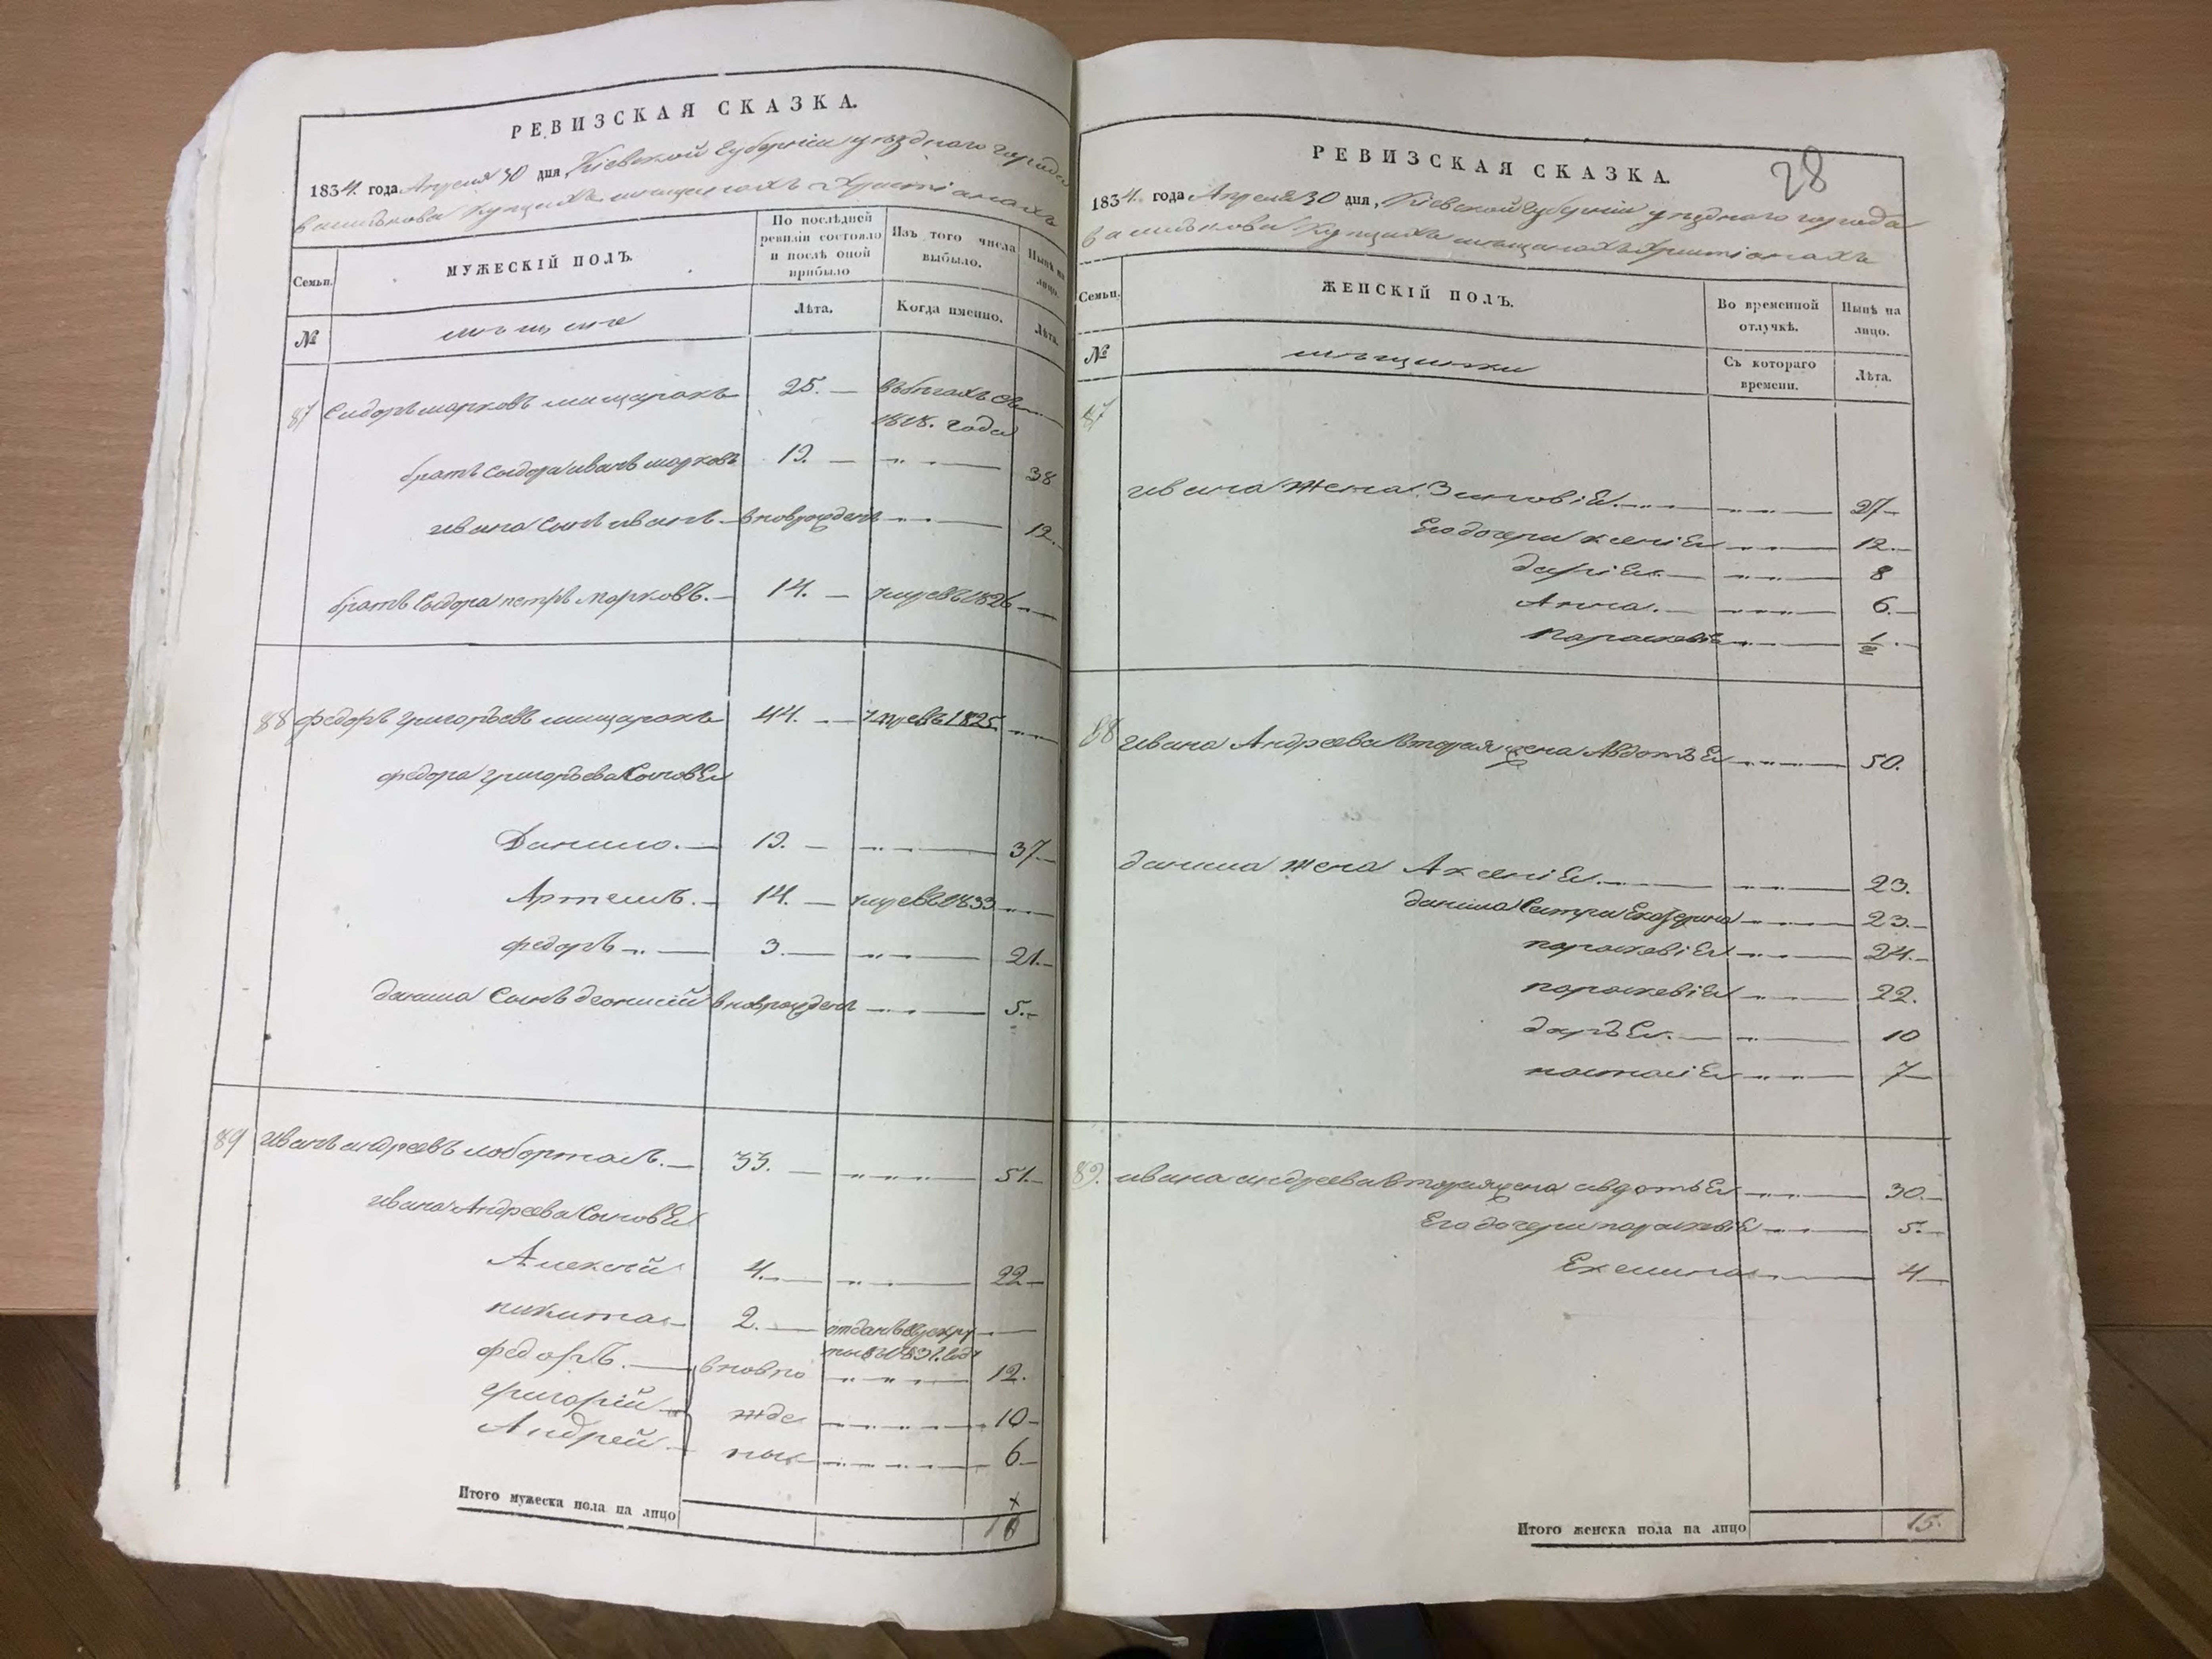 РЕВИЗСКАЯ СКАЗКА.
1834. года Апреля 30 дня, Кіевской Губерніи уѣзднаго города
Василькова Купцахъ мещанахъ Христіанахъ
Семьи.
МУЖЕСКІЙ ПОЛЪ.
По послѣдней ревизіи состояло и послѣ оной прибыло
Изъ того числа выбыло.
Нынѣ на лицо.
№
мѣщане
Лѣта.
Когда именно.
Лѣта.
87 Сидоръ марковъ мищирокъ 25. — въ бегахъ съ
1818. года
братъ Сидора иванъ марковъ 19. — 38
ивана Сынъ иванъ — вноврожденъ 12.
братъ Сидора петръ Марковъ. — 14. — умре въ 1826
88 федоръ григорьевъ мищирокъ 44. — умре въ 1825
федора григорьева Сыновья
Данило. — 19. — 37
Артемъ. — 14. — умре въ 1833
федоръ — 3. — 21.
данила Сынъ деонисій вноврожденъ 5.
89 иванъ андреевъ лоборталъ. — 33. — 51.
ивана Андреева Сыновья
Алексей 4. — 22
никита 2. — отданъ в рекру
ты въ 1831. году
федоръ. — вновро 12.
григорій жде 10
Андрей ны 6
Итого мужеска пола на лицо 10
28
РЕВИЗСКАЯ СКАЗКА.
1834. года Апреля 30 дня, Кіевской Губерніи уѣзднаго города
Василькова Купцахъ мещанахъ Христіанахъ
Семьи.
ЖЕНСКІЙ ПОЛЪ.
Во временной отлучкѣ.
Нынѣ на лицо.
№
мѣщанки
Съ котораго времени.
Лѣта.
87
ивана жена Зиновія 27
Его дочери ксенія 12.
дарія 8
Анна. 6.
параскевія 1/2
88 ивана Андреева вторая жена Авдотья 50.
данила жена Аксенія 23.
данила Сестры Екатерина 23.
параскевія 24.
параскевія 22.
дарья. 10
настасія 7
89. ивана андреева вторая жена авдотья 30.
Его дочери параскевія 5.
Екелина 4
Итого женска пола на лицо 15.